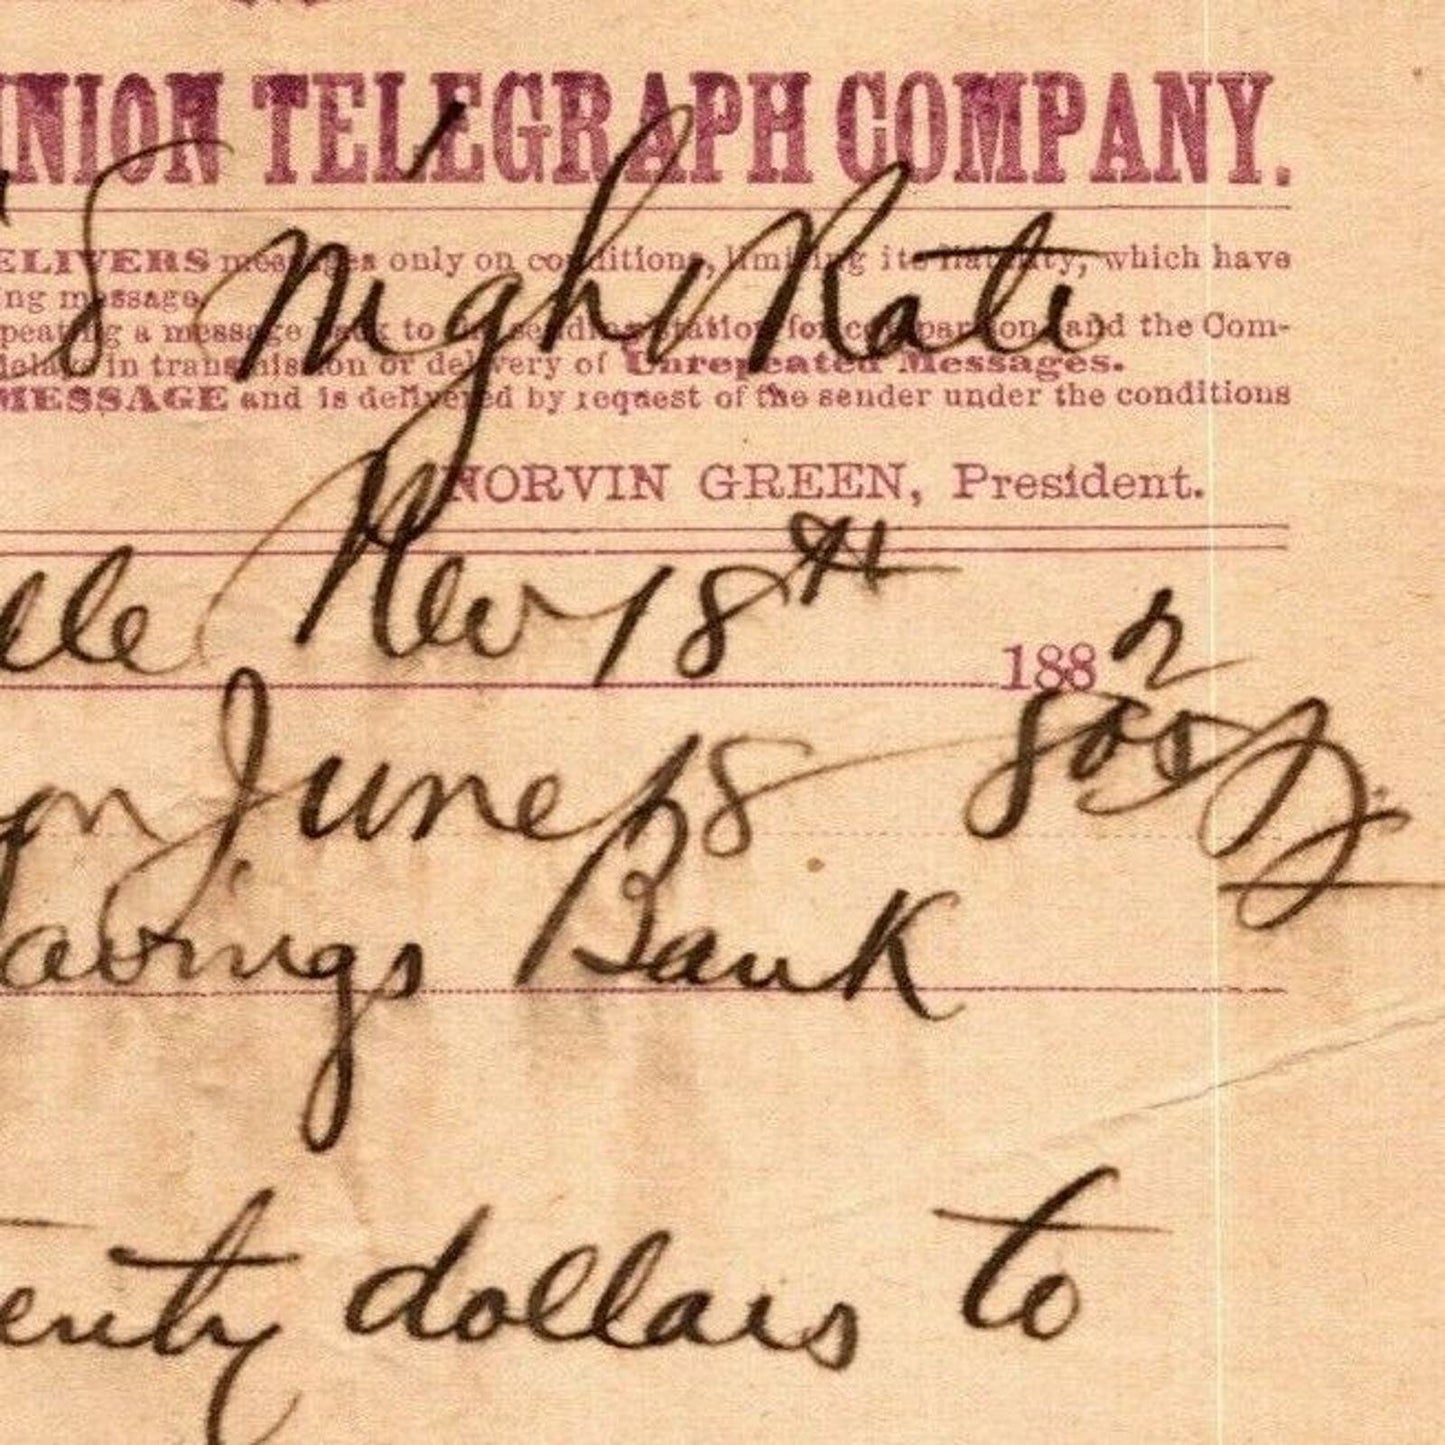 UNION TELEGRAPH COMPANY.
Night Rate
DELIVERS messages only on conditions, limiting its liability, which have
ing message.
peating a message back to the sending station for comparison, and the Com-
delays in transmission or delivery of Unrepeated Messages.
MESSAGE and is delivered by request of the sender under the conditions
NORVIN GREEN, President.
lle Nov 18th 1882
June 18
Savings Bank
enty dollars to